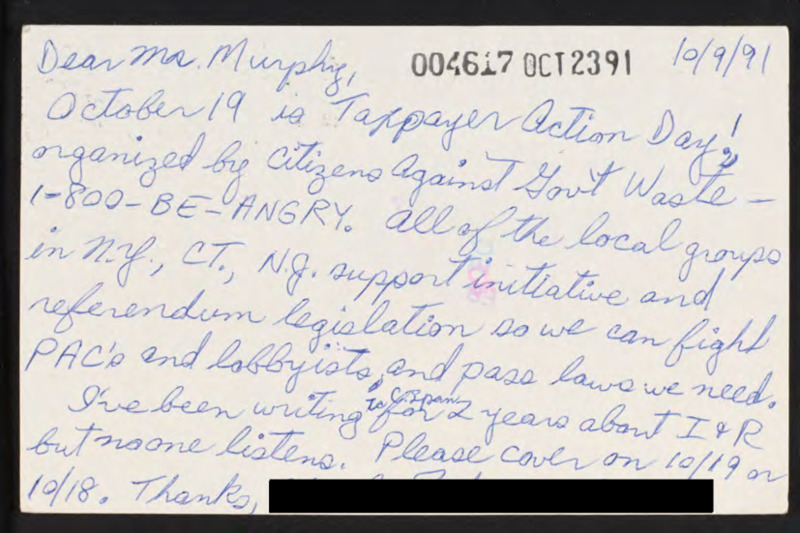 Dear Ms. Murphy, 004617 OCT2391 10/9/91
October 19 is Taxpayer Action Day!,
organized by Citizens Against Gov't Waste —
1-800-BE-ANGRY. All of the local groups
in N.Y., CT., N.J. support initiative and
referendum legislation so we can fight
PAC's and lobbyists, and pass laws we need.
I've been writing to C-Span for 2 years about I & R
but no one listens. Please cover on 10/19 or
10/18. Thanks,